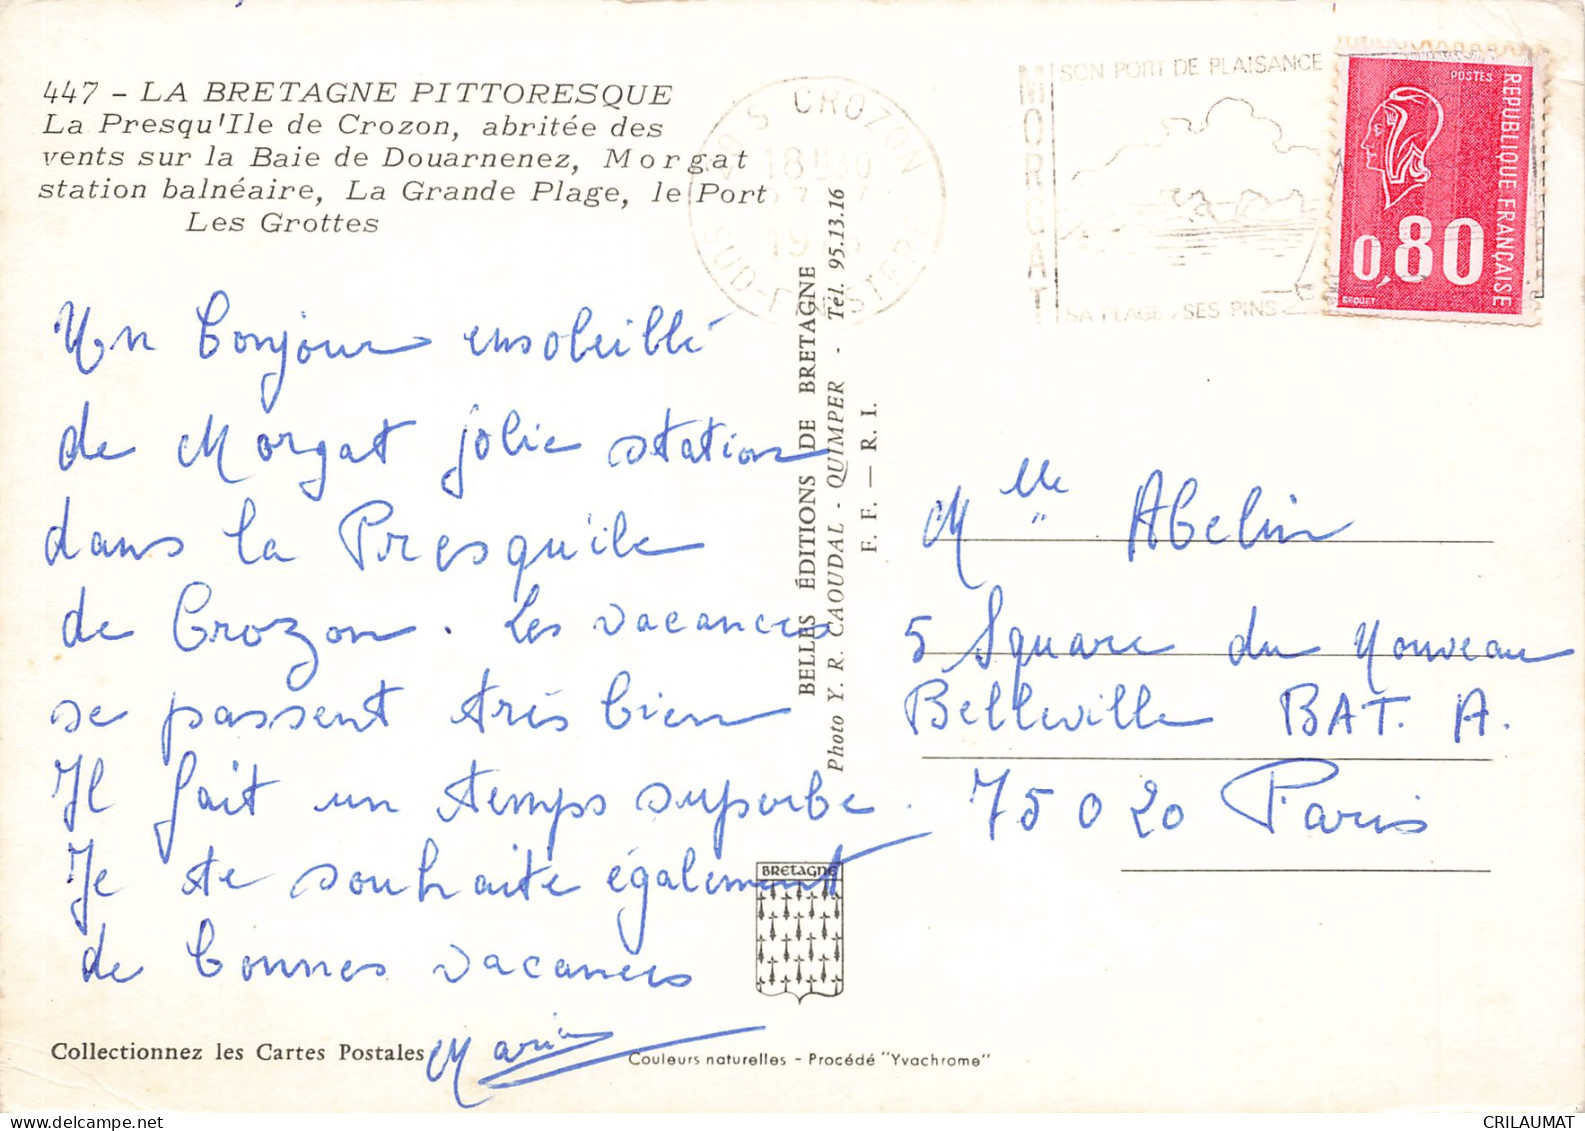 447 - LA BRETAGNE PITTORESQUE
La Presqu'Ile de Crozon, abritée des
vents sur la Baie de Douarnenez, Morgat
station balnéaire, La Grande Plage, le Port
Les Grottes
Un bonjour ensoleillé
de Morgat jolie station
dans la Presqu'île
de Crozon. Les vacances
se passent très bien
Il fait un temps superbe.
Je te souhaite également
de bonnes vacances
Maria
Collectionnez les Cartes Postales
Couleurs naturelles - Procédé "Yvachrome"
BELLES ÉDITIONS DE BRETAGNE
Photo Y. R. CAOUDAL - QUIMPER - Tél. 95.13.16
F. F. — R. I.
BRETAGNE
CROZON
18H30
SUD-FINISTERE
MORGAT
SON PORT DE PLAISANCE
SA PLAGE, SES PINS
POSTES
REPUBLIQUE FRANÇAISE
0,80
Mlle Abelin
5 Square du Nouveau
Belleville BAT. A.
75020 Paris
CRILAUMAT